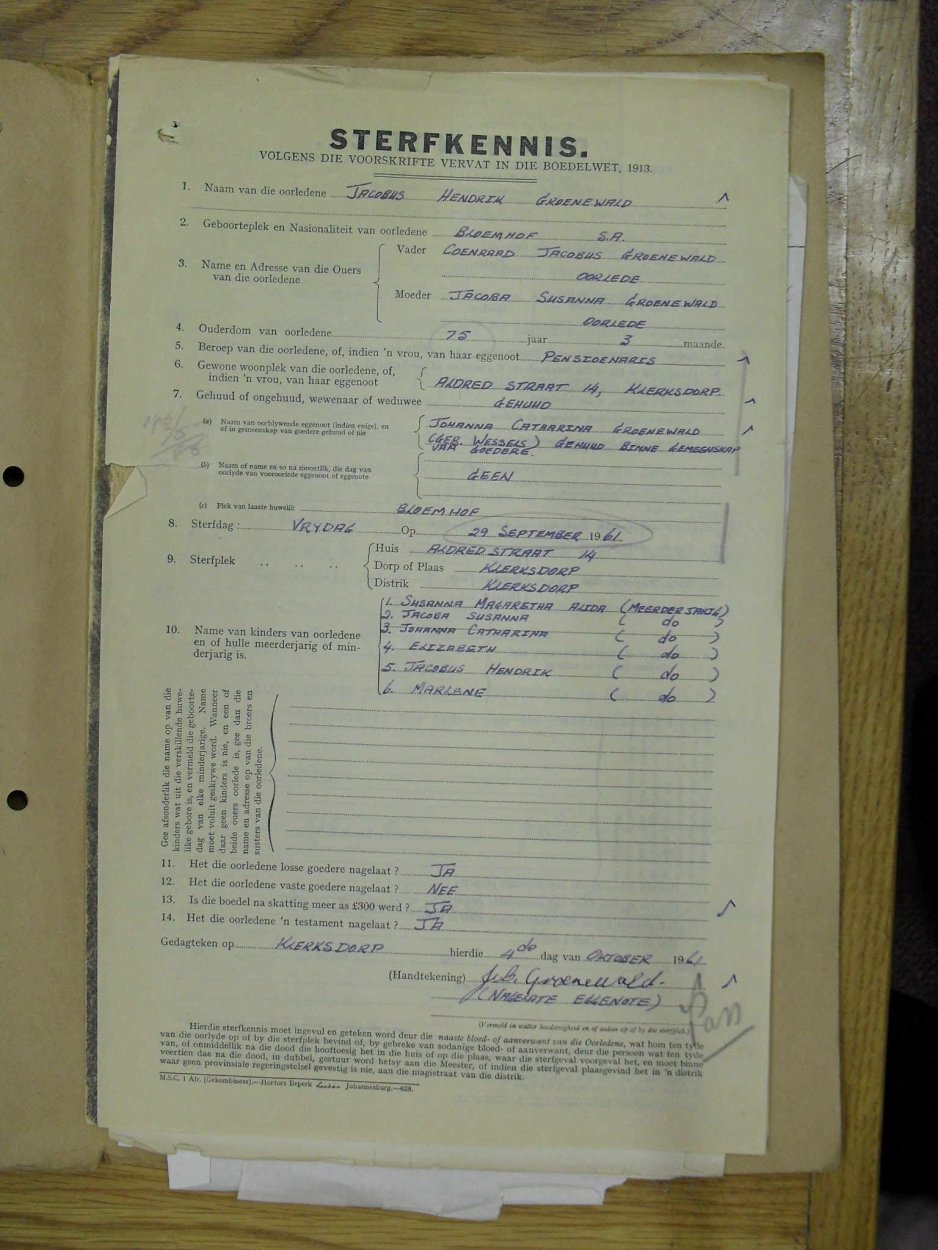 STERFKENNIS.
VOLGENS DIE VOORSKRIFTE VERVAT IN DIE BOEDELWET, 1913.
1. Naam van die oorledene JACOBUS HENDRIK GROENEWALD
2. Geboorteplek en Nasionaliteit van oorledene BLOEMHOF S.A.
3. Name en Adresse van die Ouers van die oorledene
Vader COENRAAD JACOBUS GROENEWALD
OORLEDE
Moeder JACOBA SUSANNA GROENEWALD
OORLEDE
4. Ouderdom van oorledene 75 jaar 3 maande.
5. Beroep van die oorledene, of, indien 'n vrou, van haar eggenoot PENSIOENARIS
6. Gewone woonplek van die oorledene, of,
indien 'n vrou, van haar eggenoot ALDRED STRAAT 14, KLERKSDORP
7. Gehuud of ongehuud, wewenaar of weduwee GEHUUD
(a) Naam van oorblywende eggenoot (indien enige), en
of in gemenskap van goedere gehuud of nie
JOHANNA CATHARINA GROENEWALD
(GEB. WESSELS) GEHUUD BINNE GEMEENSKAP
VAN GOEDERE.
(b) Naam of name en so na moontlik, die dag van
oorlyde van vooroorlede eggenoot of eggenote
GEEN
(c) Plek van laaste huwelik BLOEMHOF
8. Sterfdag: VRYDAG Op 29 SEPTEMBER 1961.
9. Sterfplek .. .. ..
Huis ALDRED STRAAT 14
Dorp of Plaas KLERKSDORP
Distrik KLERKSDORP
10. Name van kinders van oorledene
en of hulle meerderjarig of min-
derjarig is.
1. SUSANNA MAGARETHA ALIDA (MEERDERJARIG)
2. JACOBA SUSANNA ( do )
3. JOHANNA CATHARINA ( do )
4. ELIZABETH ( do )
5. JACOBUS HENDRIK ( do )
6. MARLENE ( do )
Gee afsonderlik die name op van die
kinders wat uit die verskillende huwe-
like gebore is, en vermeld die geboorte-
dag van elke minderjarige. Name
moet voluit geskrywe word. Wanneer
daar geen kinders is nie, en een of
beide ouers oorlede is, gee dan die
name en adresse op van die broers en
susters van die oorledene.
11. Het die oorledene losse goedere nagelaat? JA
12. Het die oorledene vaste goedere nagelaat? NEE
13. Is die boedel na skatting meer as £300 werd? JA
14. Het die oorledene 'n testament nagelaat? JA
Gedagteken op KLERKSDORP hierdie 4de dag van OKTOBER 1961
(Handtekening) Groenewald.
(NAGELATE EGGENOTE)
(Vermeld in watter hoedanigheid en of aedam op of by die sterfplek.)
Hierdie sterfkennis moet ingevul en geteken word deur die naaste bloed- of aanverwant van die Oorledene, wat hom ten tyde
van die oorlyde op of by die sterfplek bevind of, by gebreke van sodanige bloed- of aanverwant, deur die persoon wat ten tyde
van, of onmiddelik na die dood die hooftoesig het in die huis of op die plaas, waar die sterfgeval voorgeval het, en moet binne
veertien dae na die dood, in dubbel, gestuur word hetsy aan die Meester, of indien die sterfgeval plaasgevind het in 'n distrik
waar geen provinsiale regeringstelsel gevestig is nie, aan die magistraat van die distrik.
M.S.C. 1 Afr. (Gekombineer).—Hortors Beperk Johannesburg.—628.